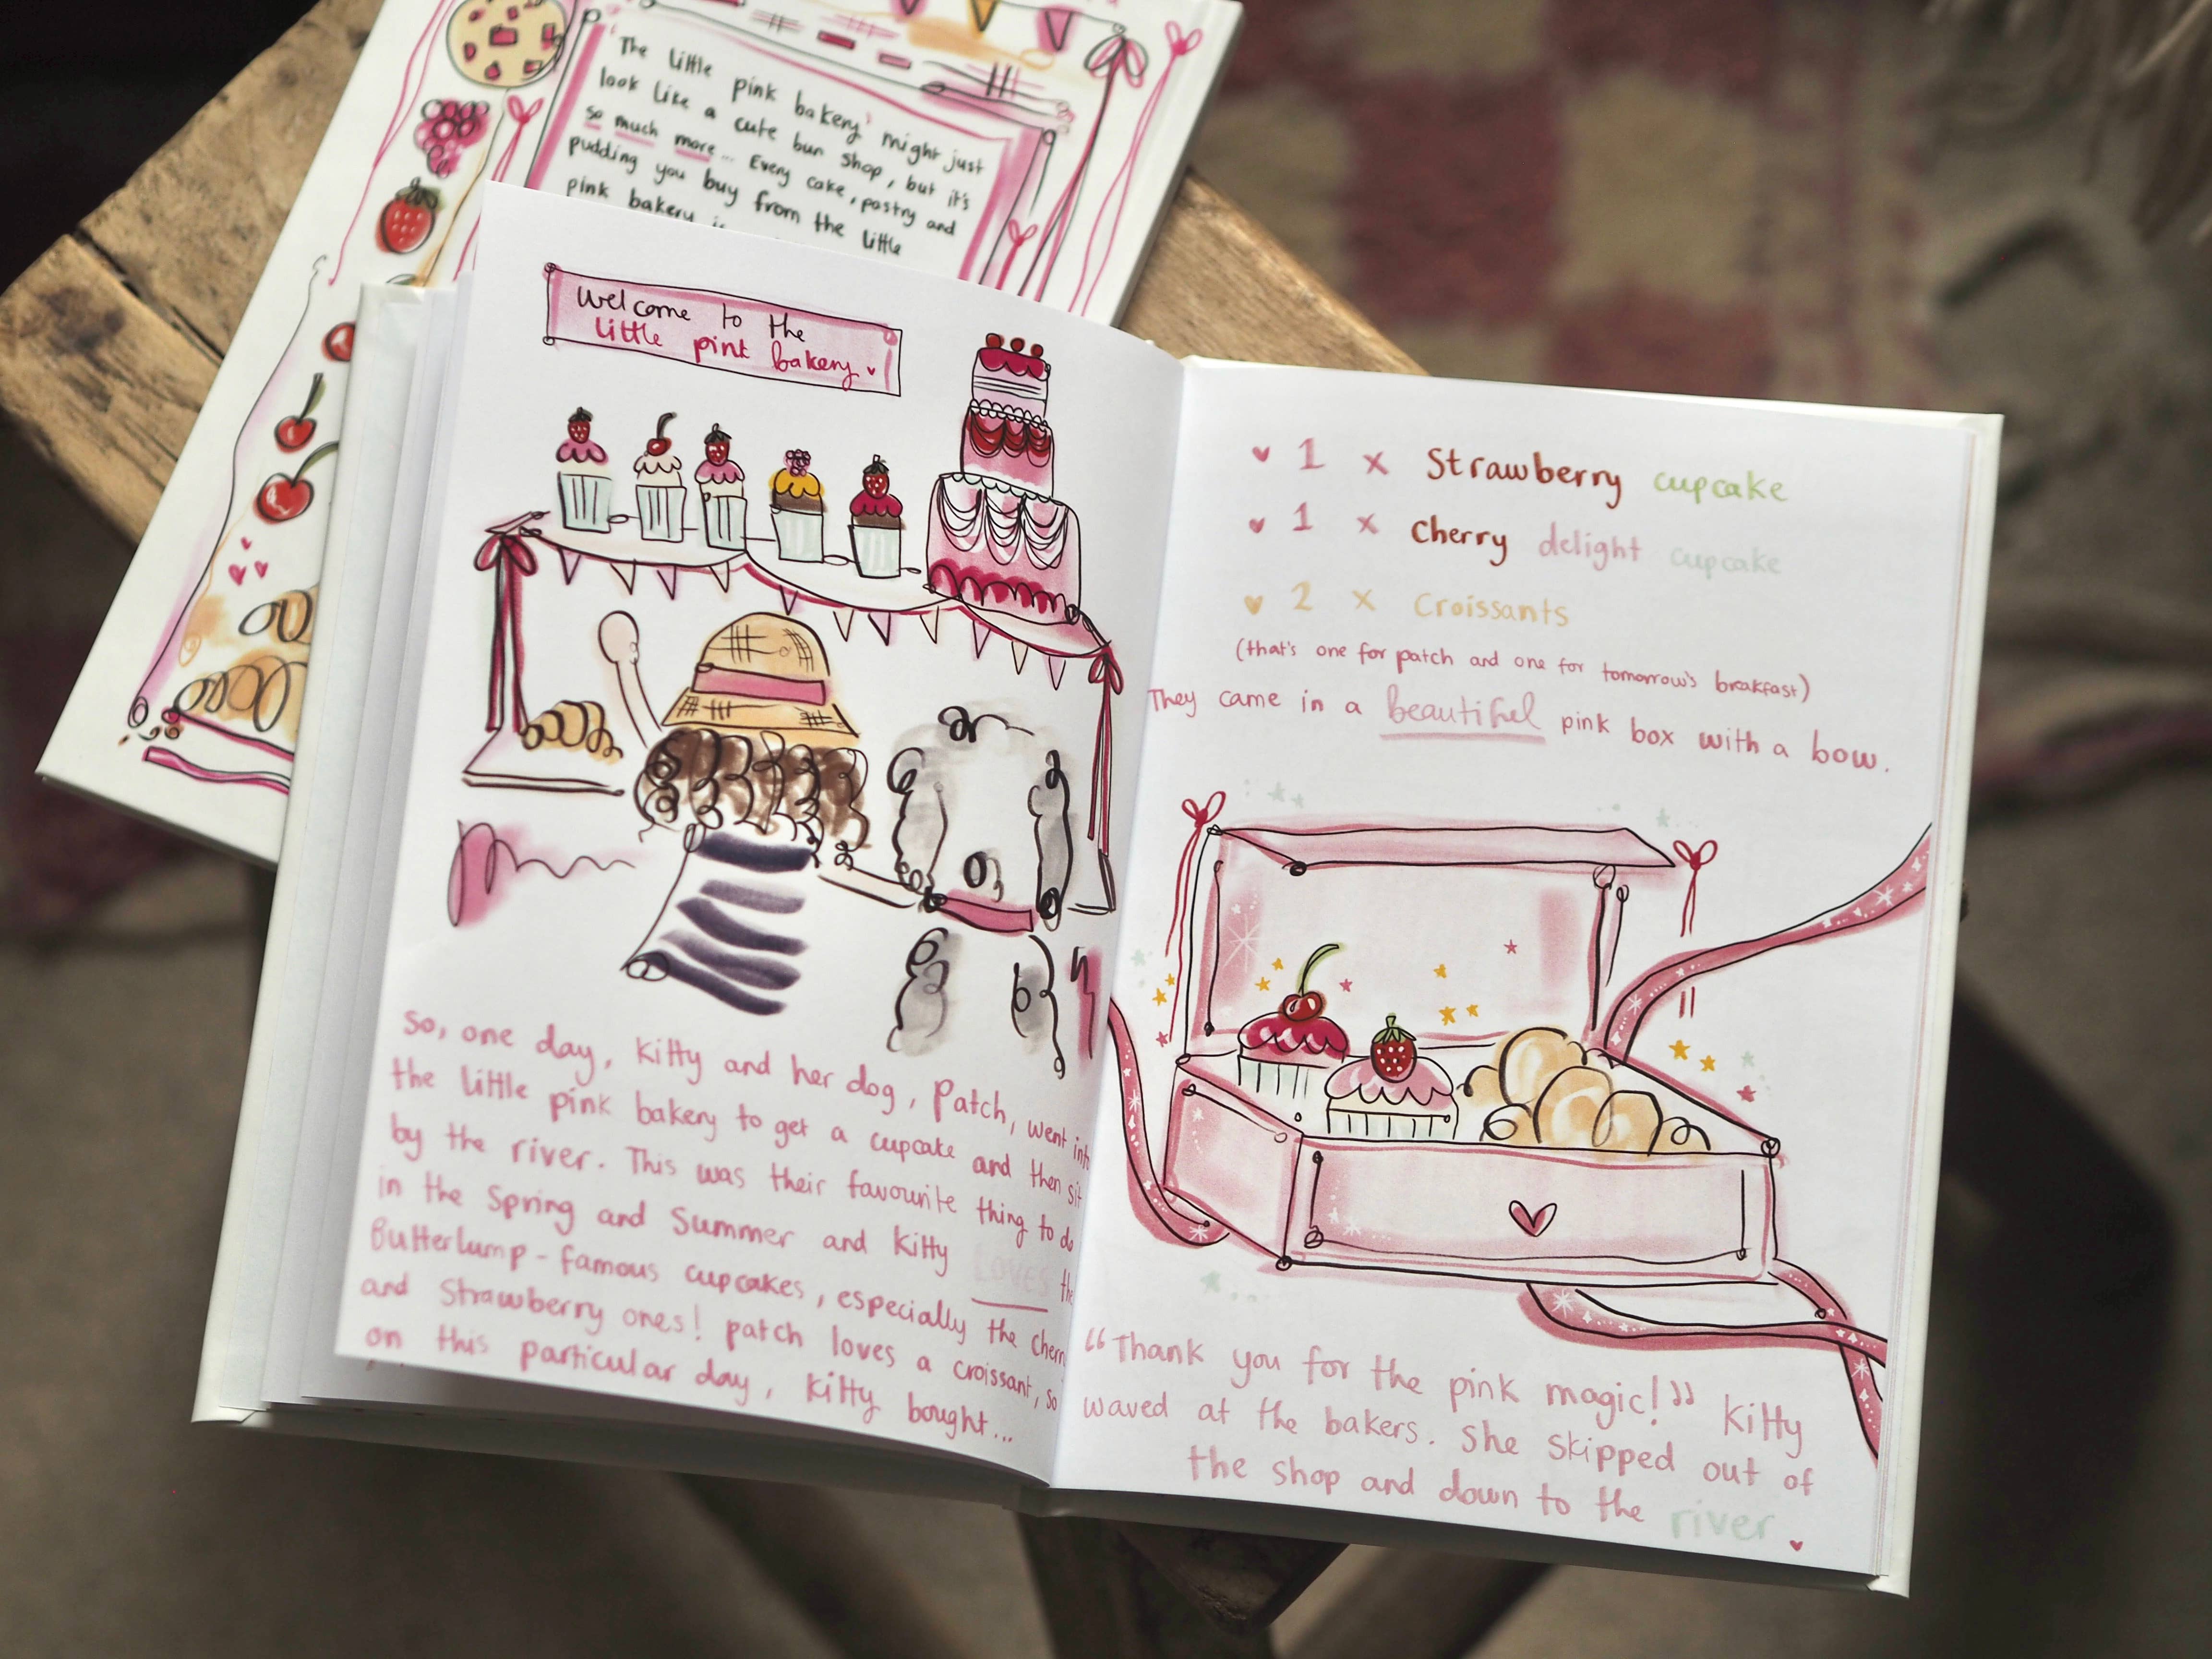 'The little pink bakery' might just
look like a cute bun shop, but it's
so much more... Every cake, pastry and
pudding you buy from the little
pink bakery is
Welcome to the
little pink bakery
So, one day, Kitty and her dog, Patch, went into
the little pink bakery to get a cupcake and then sit
by the river. This was their favourite thing to do
in the Spring and Summer and Kitty LOVES the
Butterlump-famous cupcakes, especially the cherry
and strawberry ones! Patch loves a croissant, so
on this particular day, Kitty bought...
1 x Strawberry cupcake
1 x Cherry delight cupcake
2 x Croissants
(that's one for patch and one for tomorrow's breakfast)
They came in a beautiful pink box with a bow.
"Thank you for the pink magic!" Kitty
waved at the bakers. She skipped out of
the shop and down to the river